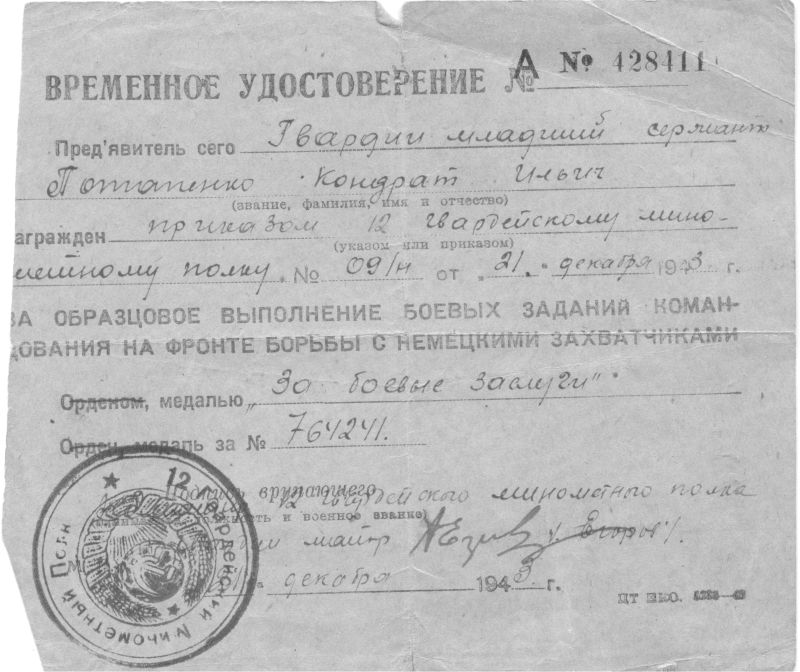 ВРЕМЕННОЕ УДОСТОВЕРЕНИЕ № А № 428411
Пред'явитель сего Гвардии младший сержант
Потапенко Кондрат Ильич
(звание, фамилия, имя и отчество)
агражден приказом 12 гвардейскому мино-
метному полку. № 09/н от „21" декабря 1943 г.
(указом или приказом)
ЗА ОБРАЗЦОВОЕ ВЫПОЛНЕНИЕ БОЕВЫХ ЗАДАНИЙ КОМАН-
ДОВАНИЯ НА ФРОНТЕ БОРЬБЫ С НЕМЕЦКИМИ ЗАХВАТЧИКАМИ
Орденом, медалью „За боевые заслуги"
Орден, медаль за № 764241.
Подпись вручающего
12 гвардейского минометного полка
должность и военное звание)
майор /Егоров/.
декабря 1943 г.
12 Гвардейский Минометный Полк